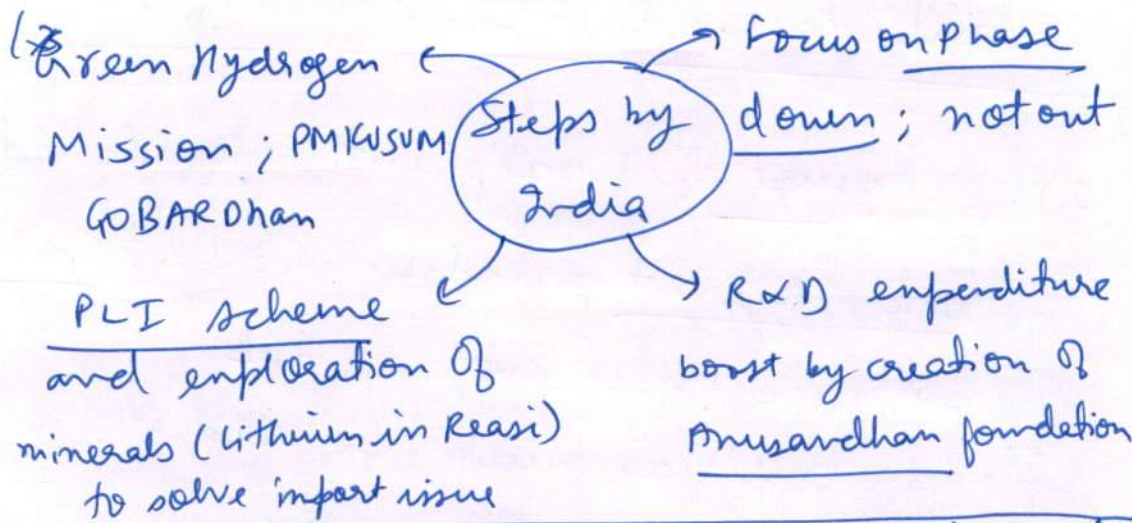 Green Hydrogen
Mission ; PMKUSUM
GOBARDhan
Steps by
India
Focus on Phase
down ; not out
PLI scheme
and exploration of
minerals (Lithium in Reasi)
to solve import issue
R&D expenditure
boost by creation of
Anusandhan foundation